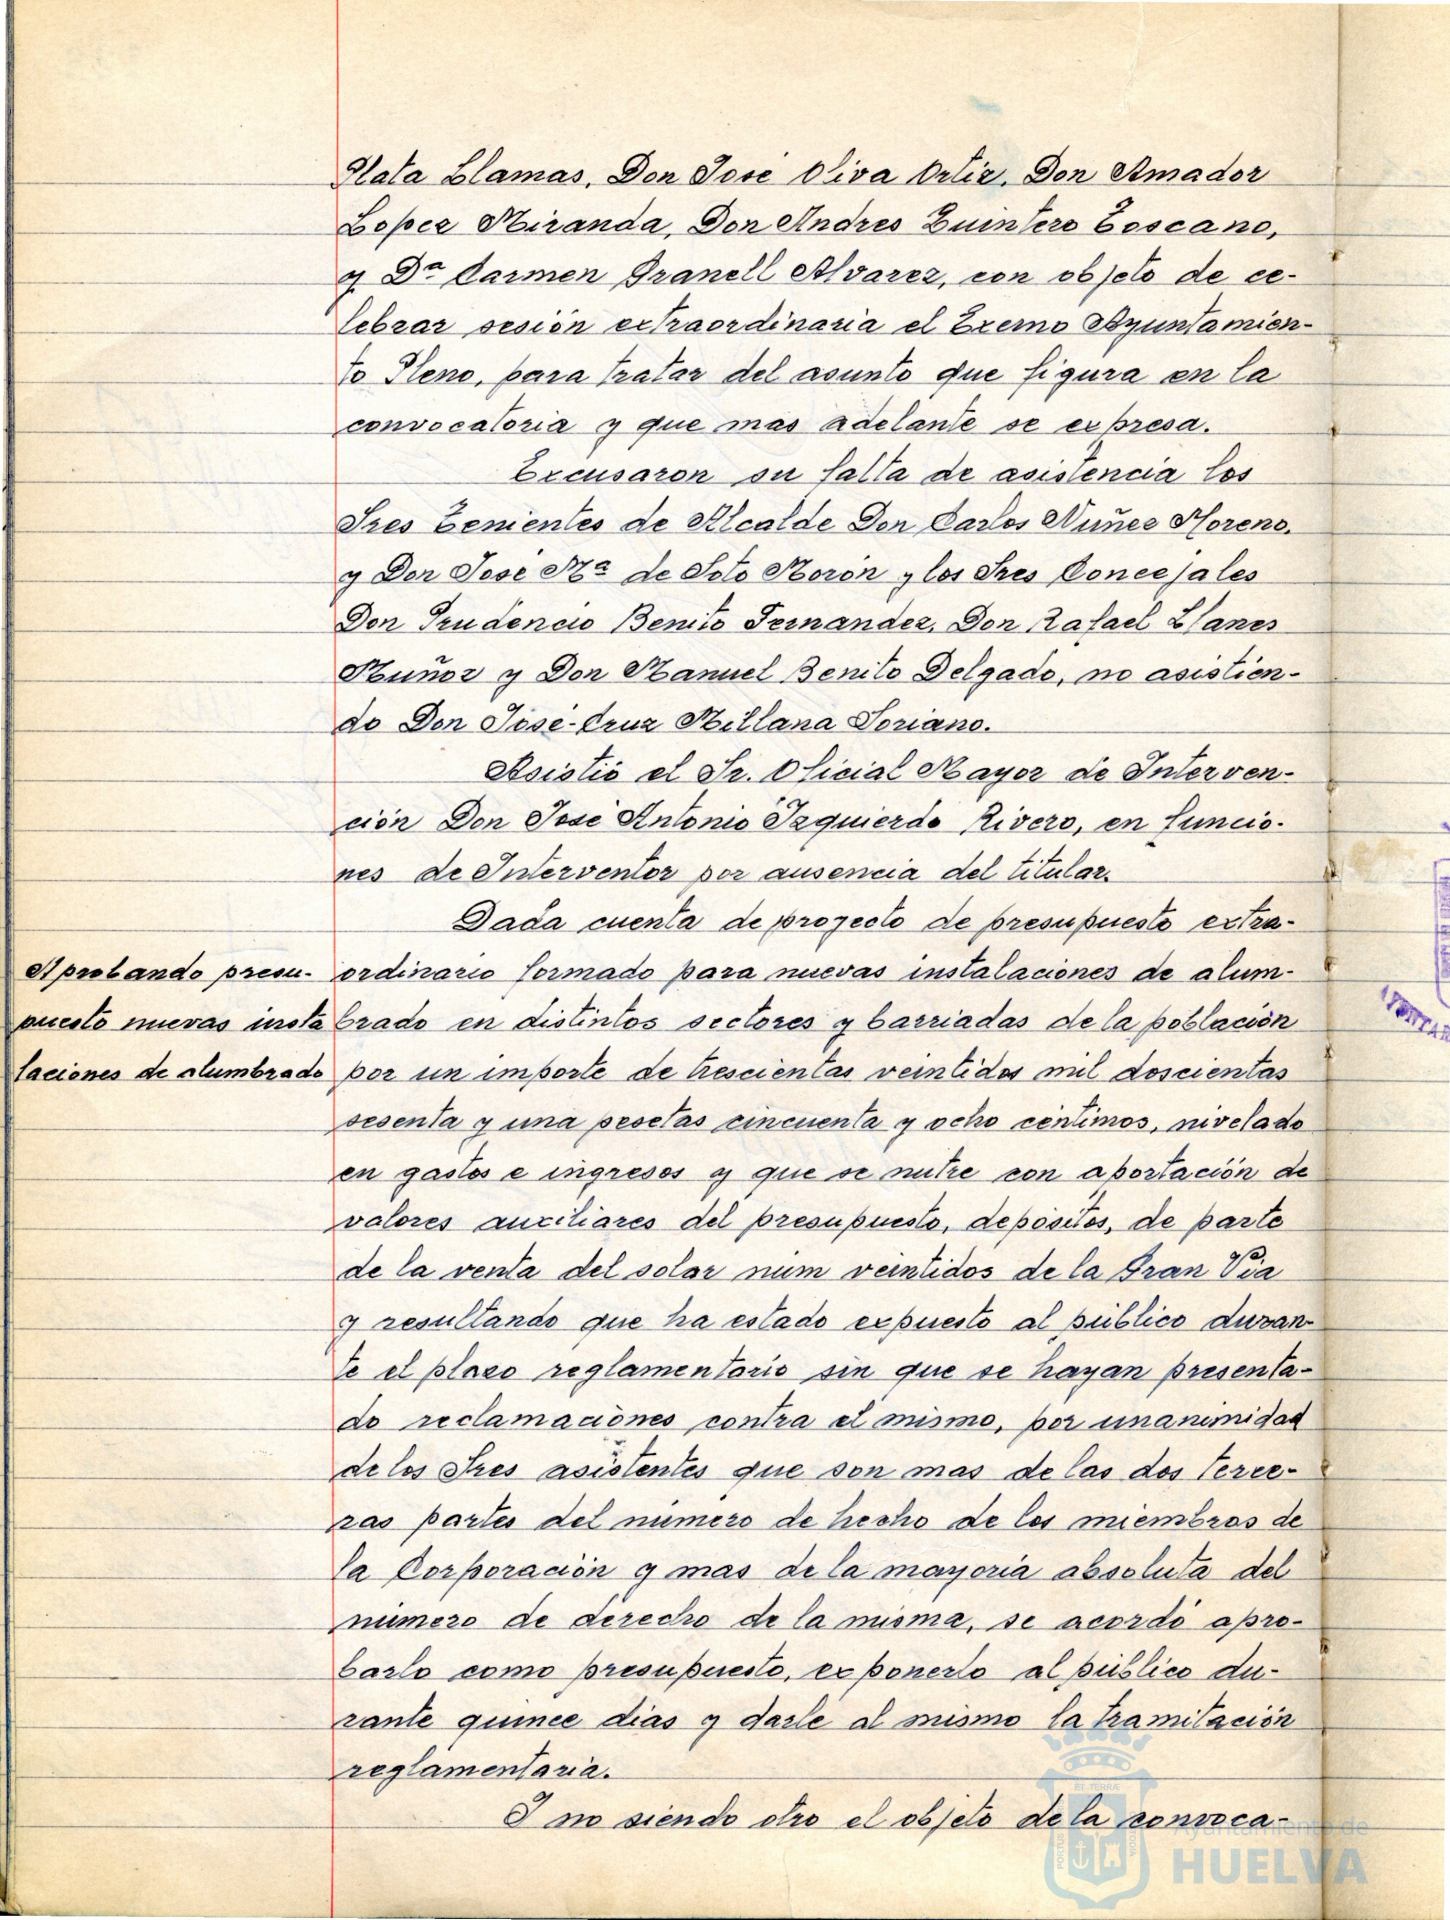 Plata Llamas, Don José Oliva Ortiz, Don Amador
Lopez Miranda, Don Andres Quintero Toscano,
y Dª Carmen Granell Alvarez, con objeto de ce-
lebrar sesión extraordinaria el Excmo Ayuntamien-
to Pleno, para tratar del asunto que figura en la
convocatoria y que mas adelante se expresa.
Excusaron su falta de asistencia los
Sres Tenientes de Alcalde Don Carlos Nuñez Moreno,
y Don José Mª de Soto Morón y los Sres Concejales
Don Prudencio Benito Fernandez, Don Rafael Llanes
Muñoz y Don Manuel Benito Delgado, no asistien-
do Don José-Cruz Millana Soriano.
Asistió el Sr. Oficial Mayor de Interven-
ción Don José Antonio Izquierdo Rivero, en funcio-
nes de Interventor por ausencia del titular.
Dada cuenta de proyecto de presupuesto extra-
Aprobando presu-
puesto nuevas insta
laciones de alumbrado
ordinario formado para nuevas instalaciones de alum-
brado en distintos sectores y barriadas de la población
por un importe de trescientas veintidos mil doscientas
sesenta y una pesetas cincuenta y ocho céntimos, nivelado
en gastos e ingresos y que se nutre con aportación de
valores auxiliares del presupuesto, depósitos, de parte
de la venta del solar núm veintidos de la Gran Via
y resultando que ha estado expuesto al público duran-
te el plazo reglamentario sin que se hayan presenta-
do reclamaciones contra el mismo, por unanimidad
de los Sres asistentes que son mas de las dos terce-
ras partes del número de hecho de los miembros de
la Corporación y mas de la mayoria absoluta del
número de derecho de la misma, se acordó apro-
barlo como presupuesto, exponerlo al público du-
rante quince dias y darle al mismo la tramitación
reglamentaria.
Y no siendo otro el objeto de la convoca-
Ayuntamiento de
HUELVA